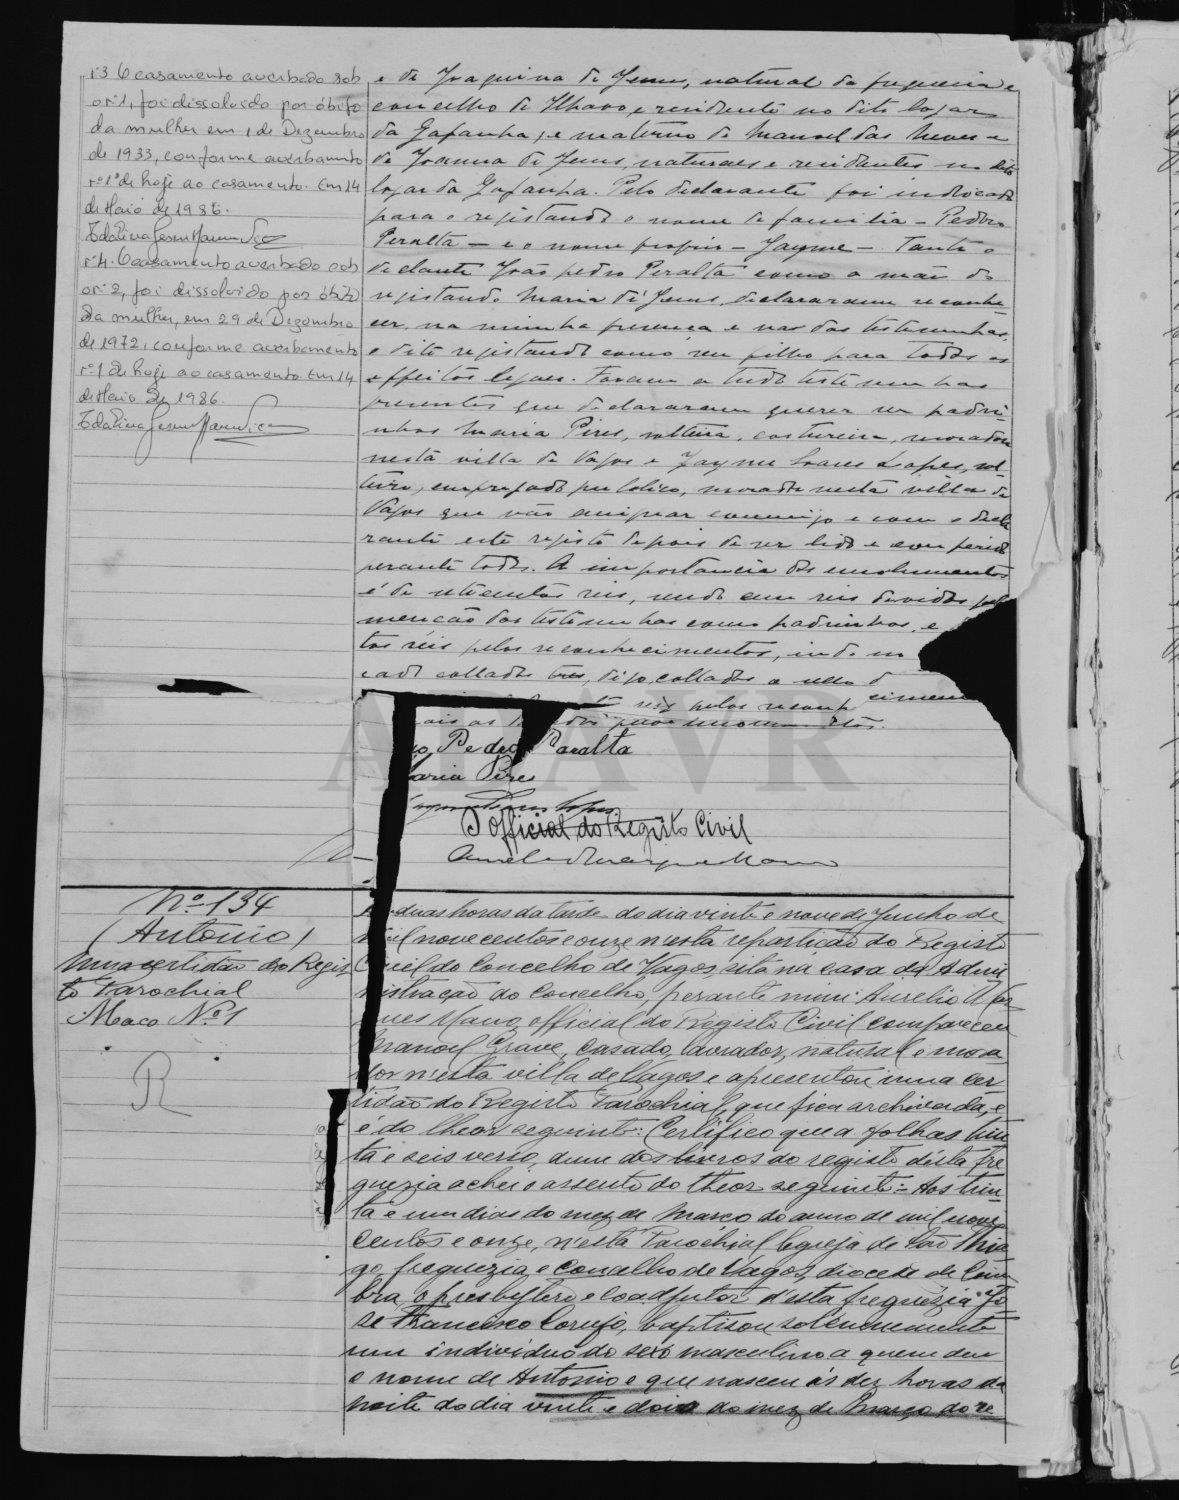 nº3 O casamento averbado sob
o nº1, foi dissolvido por óbito
da mulher em 1 de Dezembro
de 1933, conforme averbamento
nº1 de hoje ao casamento. Em 14
de Maio de 1986.
nº4. O casamento averbado sob
o nº 2, foi dissolvido por óbito
da mulher, em 29 de Dezembro
de 1972, conforme averbamento
nº1 de hoje ao casamento Em 14
de Maio de 1986.
e de Joaquina de Jesus, natural da freguesia e
concelho de Ilhavo, e residente no dito logar
da Gafanha, e materno de Manoel das Neves e
de Joanna de Jesus, naturaes e residentes no dito
logar da Gafanha. Pelo declarante foi indicado
para o registando o nome de familia - Pedro
Peralta - e o nome proprio - Jayme -. Tanto o
declante João pedro Peralta como a mãe do
registando Maria de Jesus, declararam reconhe
cer, na minha presença e nas das testemunhas,
o dito registando como seu filho para todos os
effeitos legaes. Foram a tudo testemunhas
presentes que declararam querer ser padri-
nhos Maria Pires, solteira, costureira, moradora
nesta villa de Vagos e Jayme Soares Lopes, sol-
teiro, empregado publico, morador nesta villa de
Vagos que vão assignar commigo e com o decla
rante este registo depois de ser lido e conferido
perante todos. A importancia dos emolumentos
é de seteentos reis, sendo cem reis devidos pela
menção das testemunhas como padrinhos, e
tos réis pelos reconhecimentos, indo no
cado collados tres, digo, collados o sello d
reis pelos reconh cimen
Pedro Paralta
Maria Pires
O Official do Registo Civil
Nº 134
(Antonio)
Uma certidão do Regis
to Parochial
Maço Nº 1
R
duas horas da tarde do dia vinte e nove de Junho de
mil novecentos e onze n'esta repartição do Registo
Civil do Concelho de Vagos, sita na casa da Admi
nistração do Concelho, perante mim Aurelio Mar
ques Mano, official do Registo Civil compareceu
Manoel Grave, casado, lavrador, natural e mora
dor n'esta villa de Vagos e apresentou uma cer
tidão do Registo Parochial, que fica archivada, e
é do theor seguinte: Certifico que a folhas trin
ta e seis verso, dum dos livros do registo d'esta fre
guezia achei o assento do theor seguinte = Aos trin
ta e um dias do mez de Março do anno de mil nove
centos e onze, n'esta Parochial Egreja de São Thia
go, freguezia e concelho de Vagos, diocese de Coim
bra, o presbytero e coadjutor d'esta freguezia Jo
sé Francisco Corujo, baptisou solemnemente
um individuo do sexo masculino a quem deu
o nome de Antonio e que nasceu ás dez horas da
noite do dia vinte e dois do mez de Março do re
ADAVR